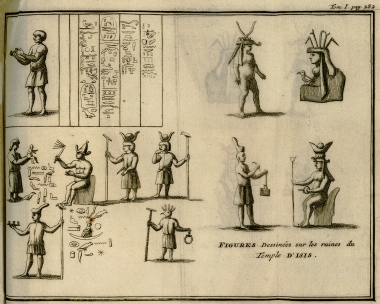 Tom. I. pag. 382
FIGURES Dessinées sur les ruines du
Temple D'ISIS.